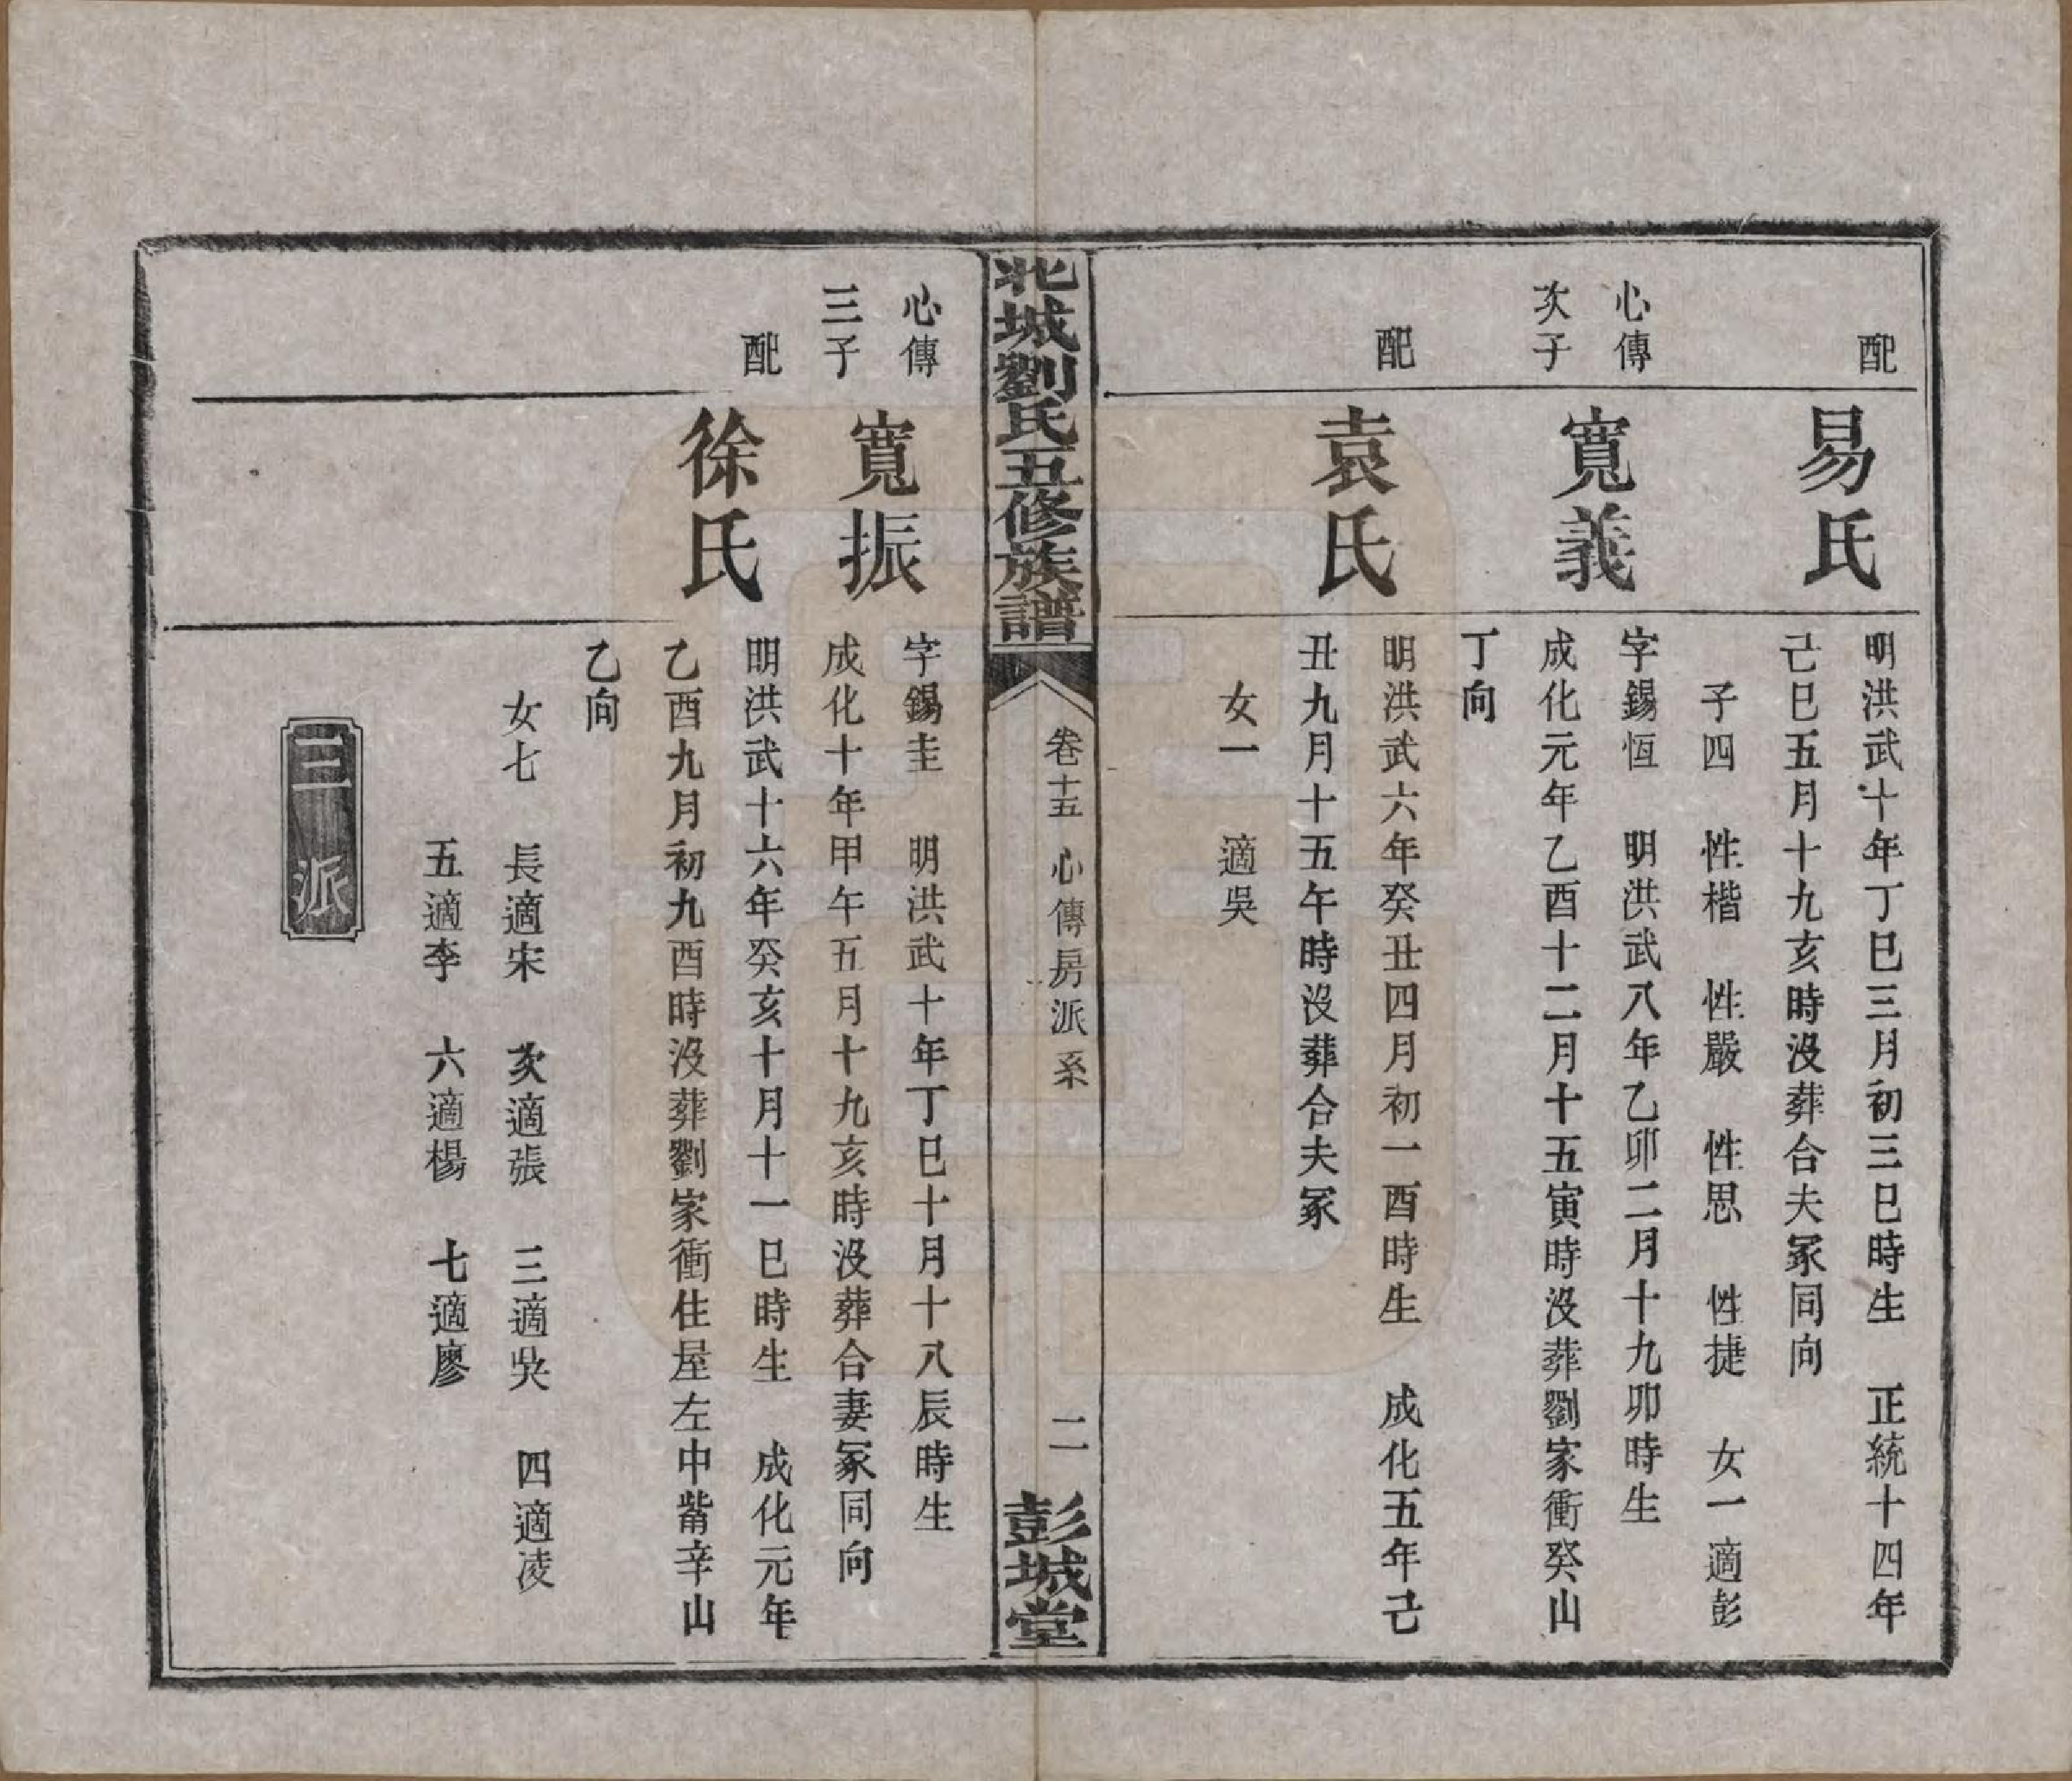 配
易氏
明洪武十年丁巳三月初三巳時生　正統十四年
己巳五月十九亥時沒葬合夫冢同向
子四　性楷　性嚴　性思　性捷　女一適彭
心傳
次子
寬義
字錫恆　明洪武八年乙卯二月十九卯時生
成化元年乙酉十二月十五寅時沒葬劉家衝癸山
丁向
配
袁氏
明洪武六年癸丑四月初一酉時生　成化五年己
丑九月十五午時沒葬合夫冢
女一　適吳
北城劉氏五修族譜
卷十五　心傳房派系
二
彭城堂
心傳
三子
寬振
字錫圭　明洪武十年丁巳十月十八辰時生
成化十年甲午五月十九亥時沒葬合妻冢同向
配
徐氏
明洪武十六年癸亥十月十一巳時生　成化元年
乙酉九月初九酉時沒葬劉家衝住屋左中嘴辛山
乙向
女七　長適宋　次適張　三適吳　四適凌
五適李　六適楊　七適廖
三派